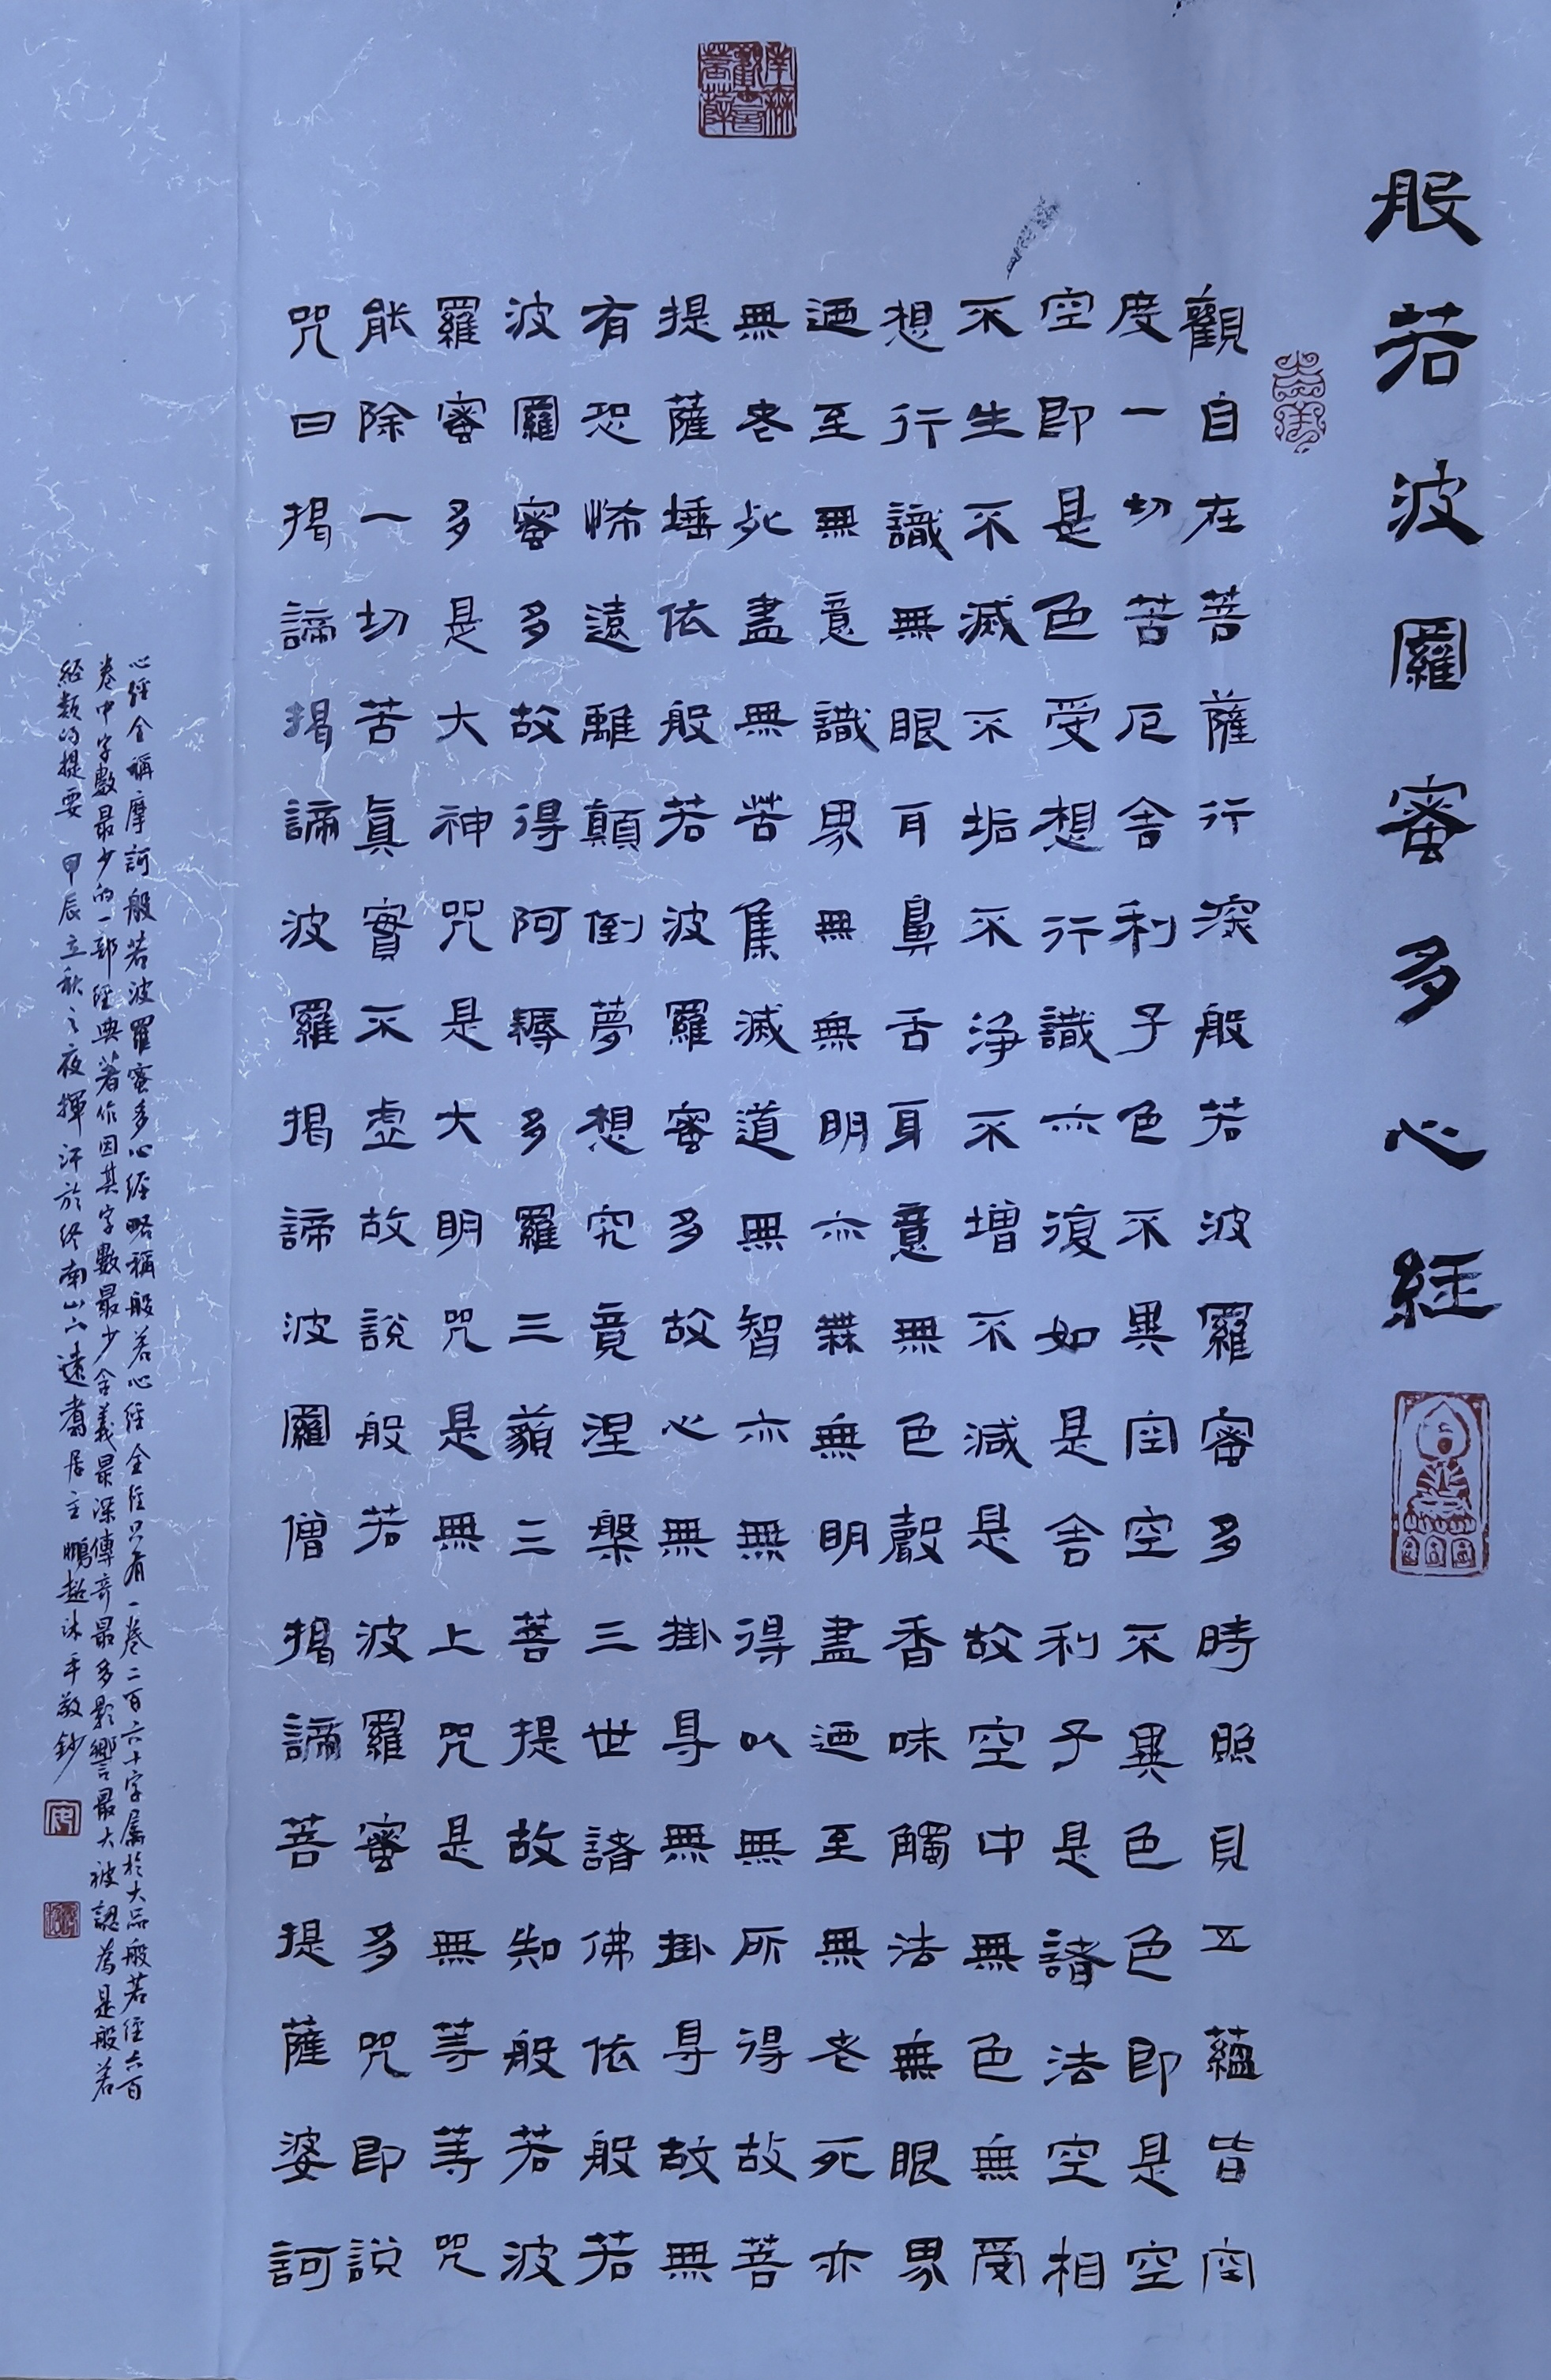 般若波羅蜜多心經
觀自在菩薩行深般若波羅蜜多時照見五蘊皆空
度一切苦厄舍利子色不異空空不異色色即是空
空即是色受想行識亦復如是舍利子是諸法空相
不生不滅不垢不淨不增不減是故空中無色無受
想行識無眼耳鼻舌身意無色聲香味觸法無眼界
迺至無意識界無無明亦無無明盡迺至無老死亦
無老死盡無苦集滅道無智亦無得以無所得故菩
提薩埵依般若波羅蜜多故心無掛㝵無掛㝵故無
有恐怖遠離顛倒夢想究竟涅槃三世諸佛依般若
波羅蜜多故得阿耨多羅三藐三菩提故知般若波
羅蜜多是大神咒是大明咒是無上咒是無等等咒
能除一切苦真實不虛故說般若波羅蜜多咒即說
咒曰揭諦揭諦波羅揭諦波羅僧揭諦菩提薩婆訶
心經全稱摩訶般若波羅蜜多心經略稱般若心經全經只有一卷二百六十字屬於大品般若經六百
卷中字數最少的一部經典著作因其字數最少含義最深傳奇最多影響最大被認為是般若
經類的提要 甲辰立秋之夜揮汗於終南山六遠齋居主鵬超沐手敬鈔
南無觀世音菩薩